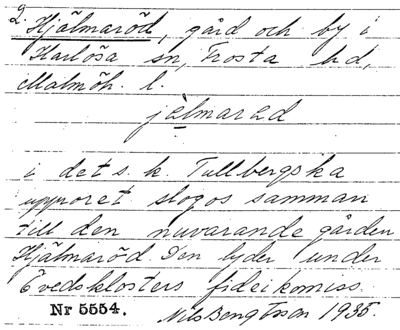 2.
Hjälmaröd, gård och by i
Harlösa sn, Frosta hd,
Malmöh. l.
jälmaröd
i det s. k. Tullbergska
upproret slogos samman
till den nuvarande gården
Hjälmaröd. Den lyder under
Övedsklosters fideikomiss.
Nr 5554.
Nils Bengtsson 1935